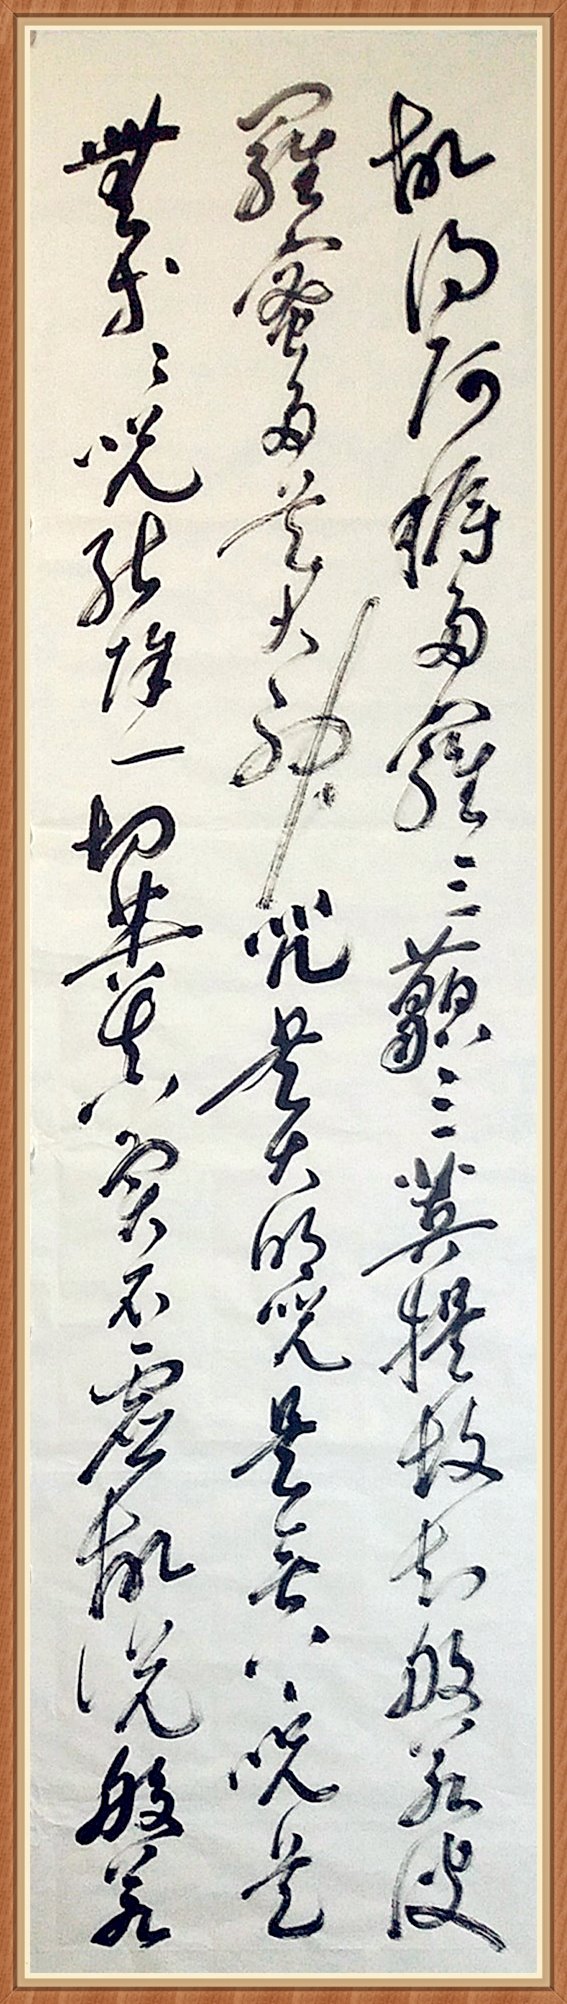 故得阿耨多羅三藐三菩提故知般若波
羅蜜多是大神咒是大明咒是無上咒是
無等等咒能除一切苦真實不虛故說般若